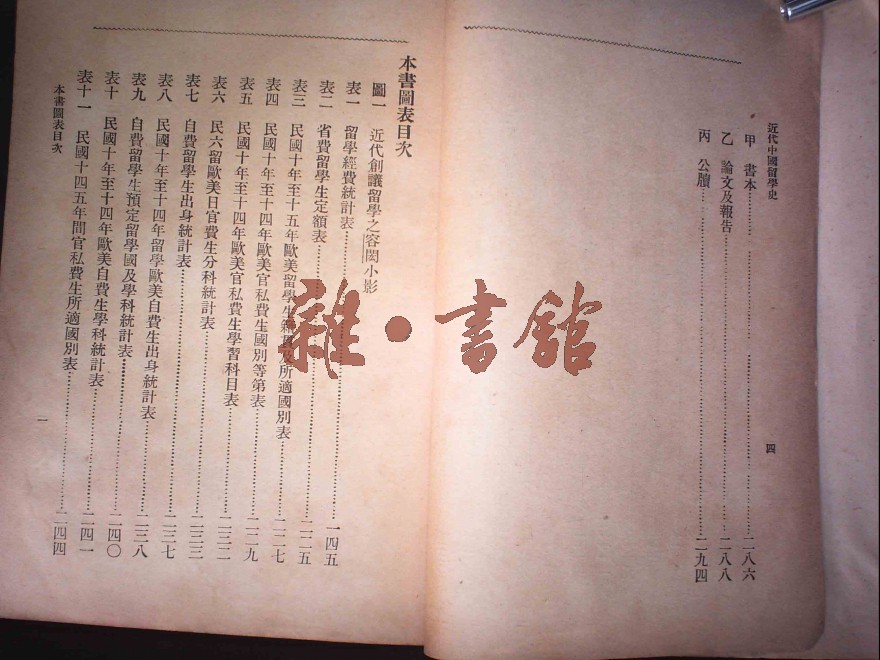 近代中國留學史 四
甲 書本……二八六
乙 論文及報告……二八八
丙 公牘……二九四
本書圖表目次
圖一 近代創議留學之容閎小影
表一 留學經費統計表……一四五
表二 省費留學生定額表……二二五
表三 民國十年至十五年歐美留學生籍貫及所適國別表……二二七
表四 民國十年至十四年歐美官私費生國別等第表……二二九
表五 民國十年至十四年歐美官私費生學習科目表……二三二
表六 民六留歐美日官費生分科統計表……二三三
表七 自費留學生出身統計表……二三七
表八 民國十年至十四年留學歐美自費生出身統計表……二三八
表九 自費留學生預定留學國及學科統計表……二四〇
表十 民國十年至十四年歐美自費生學科統計表……二四一
表十一 民國十四五年間官私費生所適國別表……二四四
本書圖表目次 一
雜·書館